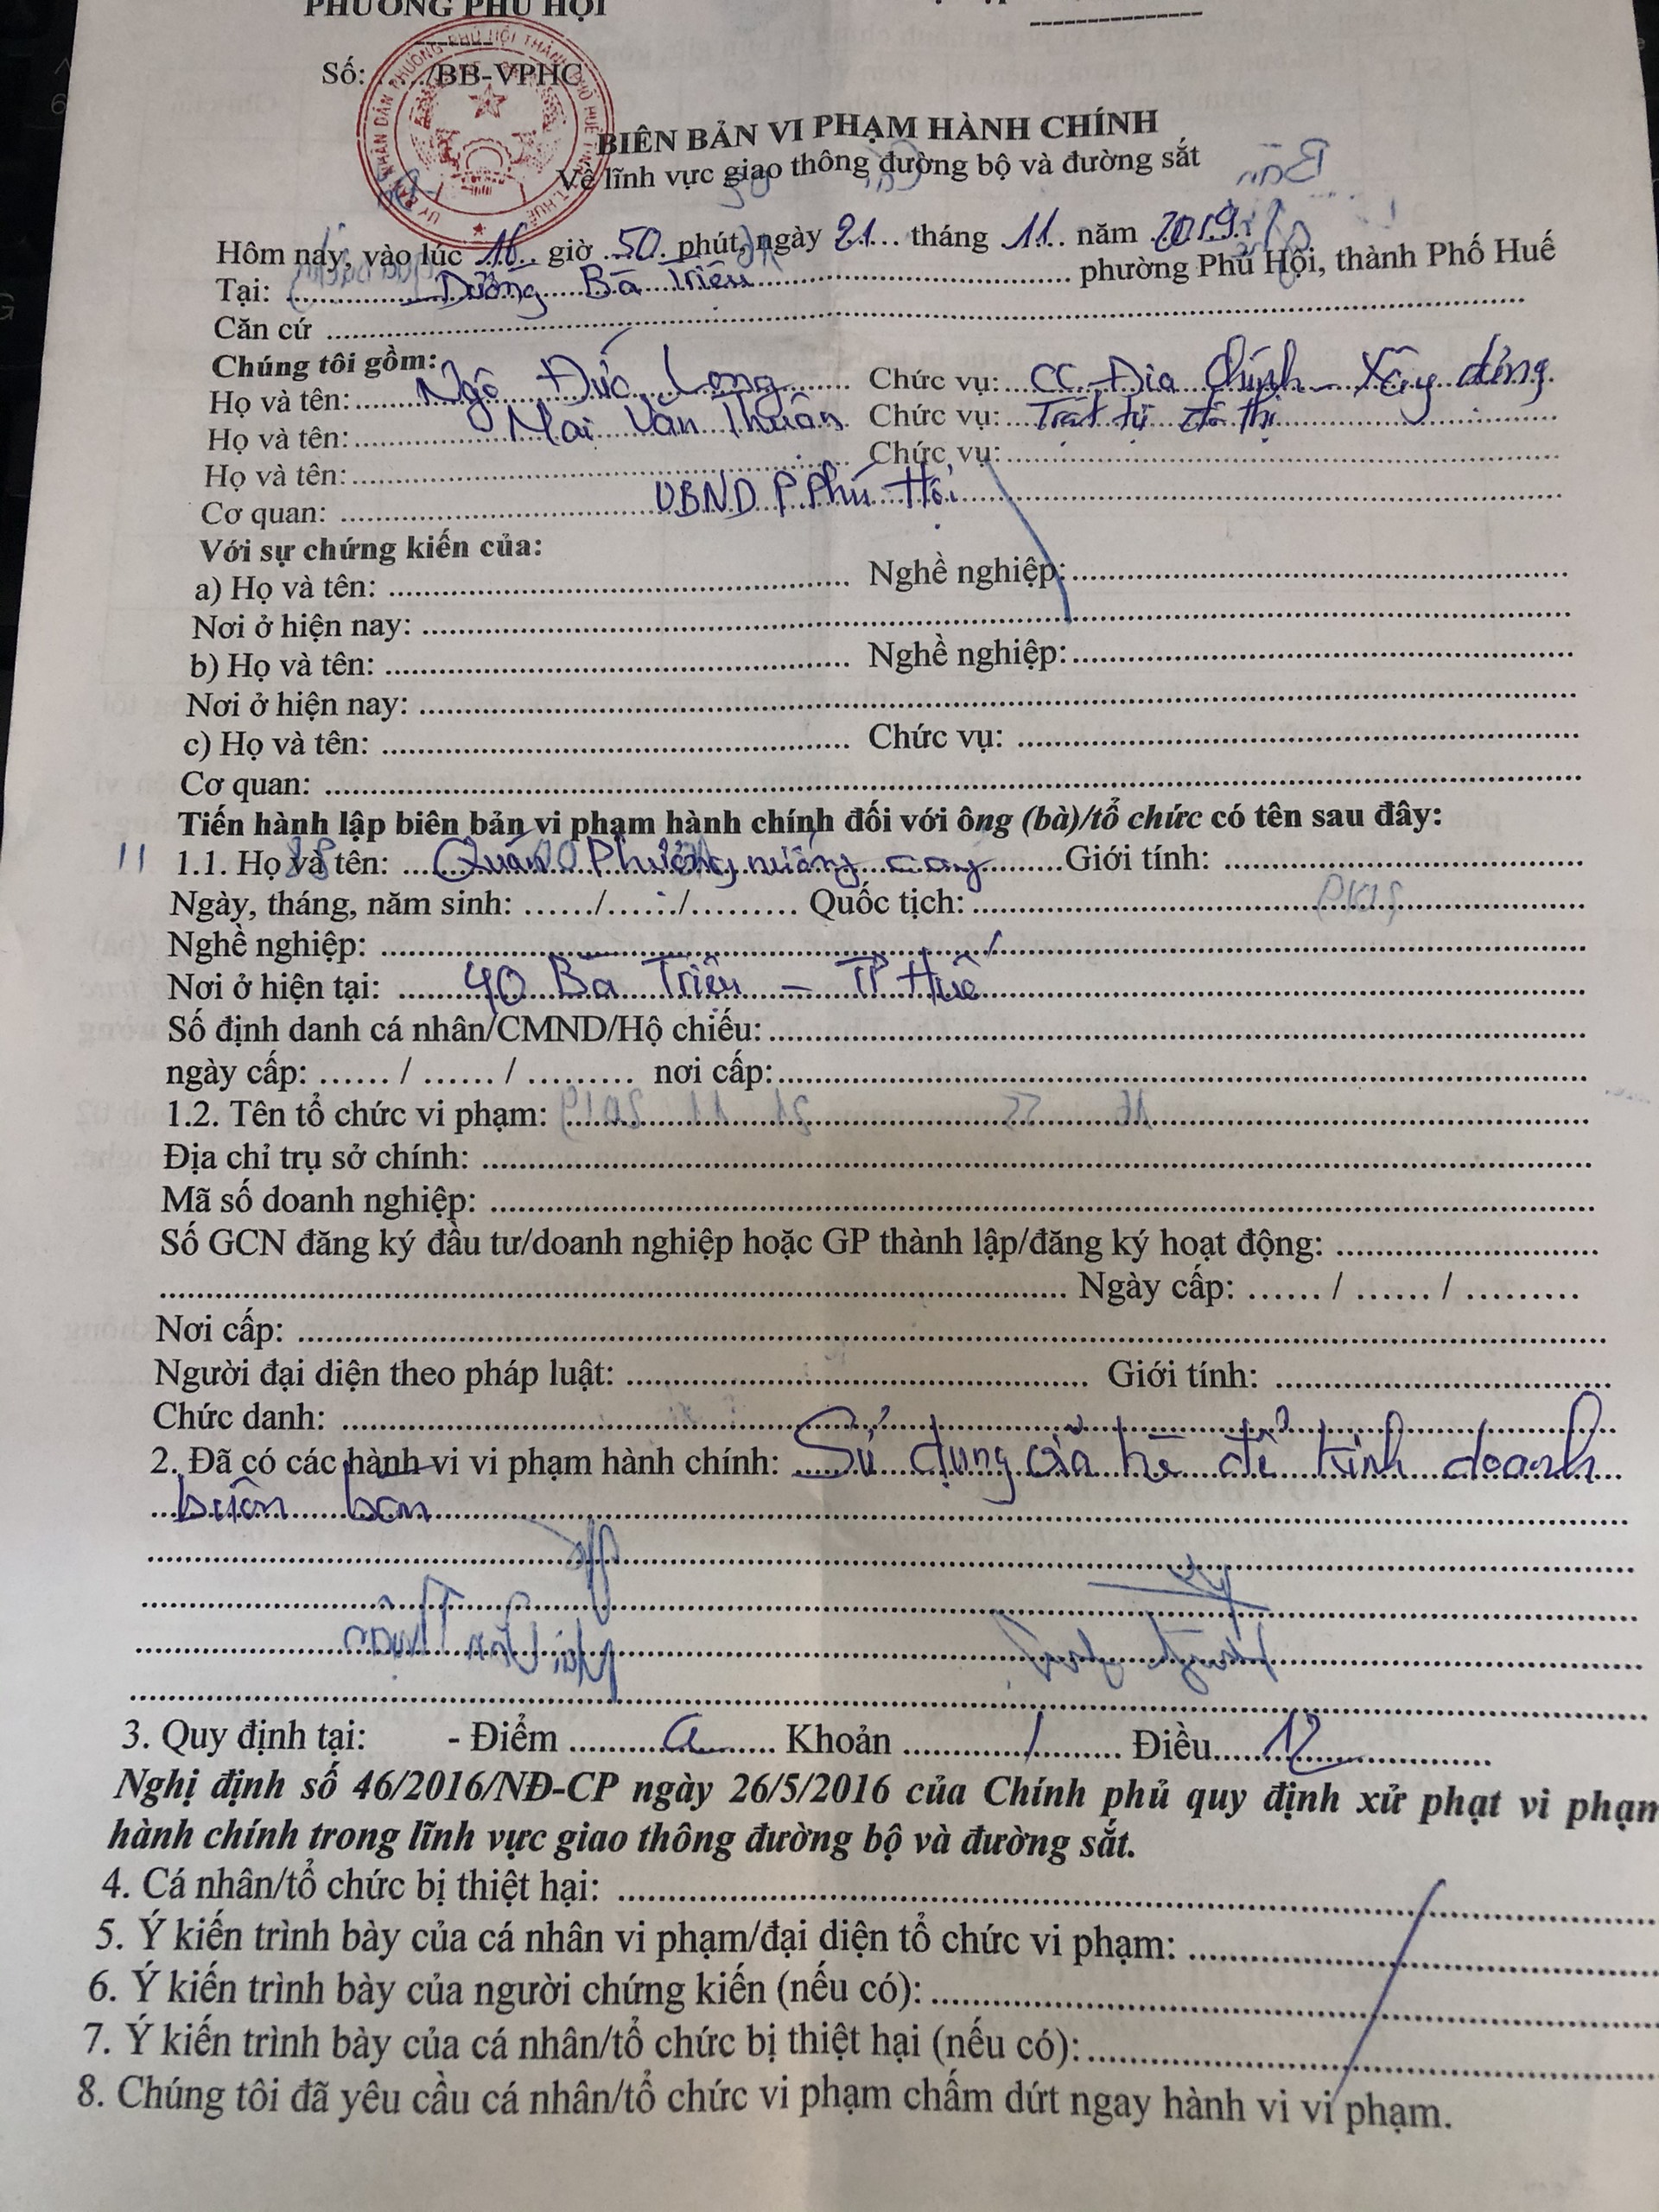 PHƯỜNG PHÚ HỘI
Số: ....../BB-VPHC
BIÊN BẢN VI PHẠM HÀNH CHÍNH
Về lĩnh vực giao thông đường bộ và đường sắt
Hôm nay, vào lúc 16 giờ 50 phút, ngày 21 tháng 11 năm 2019
Tại: Đường Bà Triệu phường Phú Hội, thành Phố Huế
Căn cứ
Chúng tôi gồm:
Họ và tên: Ngô Đức Long Chức vụ: CC-Địa Chính - Xây dựng
Họ và tên: Mai Văn Thuần Chức vụ: Trật tự đô thị
Họ và tên: Chức vụ:
Cơ quan: UBND P. Phú Hội
Với sự chứng kiến của:
a) Họ và tên: Nghề nghiệp:
Nơi ở hiện nay:
b) Họ và tên: Nghề nghiệp:
Nơi ở hiện nay:
c) Họ và tên: Chức vụ:
Cơ quan:
Tiến hành lập biên bản vi phạm hành chính đối với ông (bà)/tổ chức có tên sau đây:
1.1. Họ và tên: Quán Phường nướng cay Giới tính:
Ngày, tháng, năm sinh: ....../....../......... Quốc tịch:
Nghề nghiệp:
Nơi ở hiện tại: 40 Bà Triệu - TP Huế
Số định danh cá nhân/CMND/Hộ chiếu:
ngày cấp: ...... / ...... / ......... nơi cấp:
1.2. Tên tổ chức vi phạm:
Địa chỉ trụ sở chính:
Mã số doanh nghiệp:
Số GCN đăng ký đầu tư/doanh nghiệp hoặc GP thành lập/đăng ký hoạt động:
Ngày cấp: ...... / ...... / .........
Nơi cấp:
Người đại diện theo pháp luật: Giới tính:
Chức danh:
2. Đã có các hành vi vi phạm hành chính: Sử dụng vỉa hè để kinh doanh
buôn bán
3. Quy định tại: - Điểm a Khoản 1 Điều 12
Nghị định số 46/2016/NĐ-CP ngày 26/5/2016 của Chính phủ quy định xử phạt vi phạm
hành chính trong lĩnh vực giao thông đường bộ và đường sắt.
4. Cá nhân/tổ chức bị thiệt hại:
5. Ý kiến trình bày của cá nhân vi phạm/đại diện tổ chức vi phạm:
6. Ý kiến trình bày của người chứng kiến (nếu có):
7. Ý kiến trình bày của cá nhân/tổ chức bị thiệt hại (nếu có):
8. Chúng tôi đã yêu cầu cá nhân/tổ chức vi phạm chấm dứt ngay hành vi vi phạm.